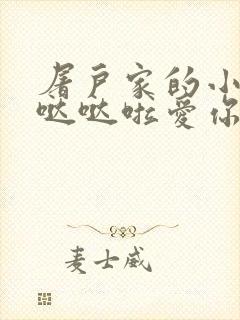 屠户家的小
哒哒啦爱你
麦士威